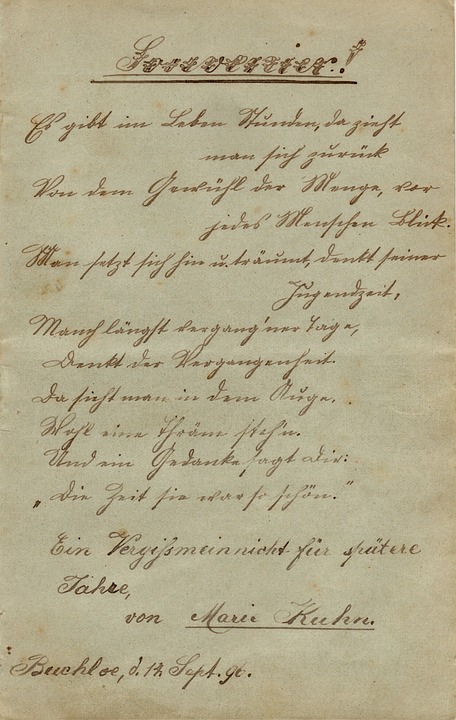 Souvenier.!
Es gibt im Leben Stunden, da zieht
man sich zurück
Von dem Gewühl der Menge, vor
jedes Menschen Blick.
Man setzt sich hin u. träumt, denkt seiner
Jugendzeit,
Manch längst vergang'ner Tage,
Denkt der Vergangenheit.
Da sieht man in dem Auge.
Wohl eine Thräne steh'n.
Und ein Gedanke sagt Dir:
„Die Zeit sie war so schön."
Ein Vergißmeinnicht für spätere
Jahre,
von Marie Kuhn.
Buchloe, d. Sept. 90.